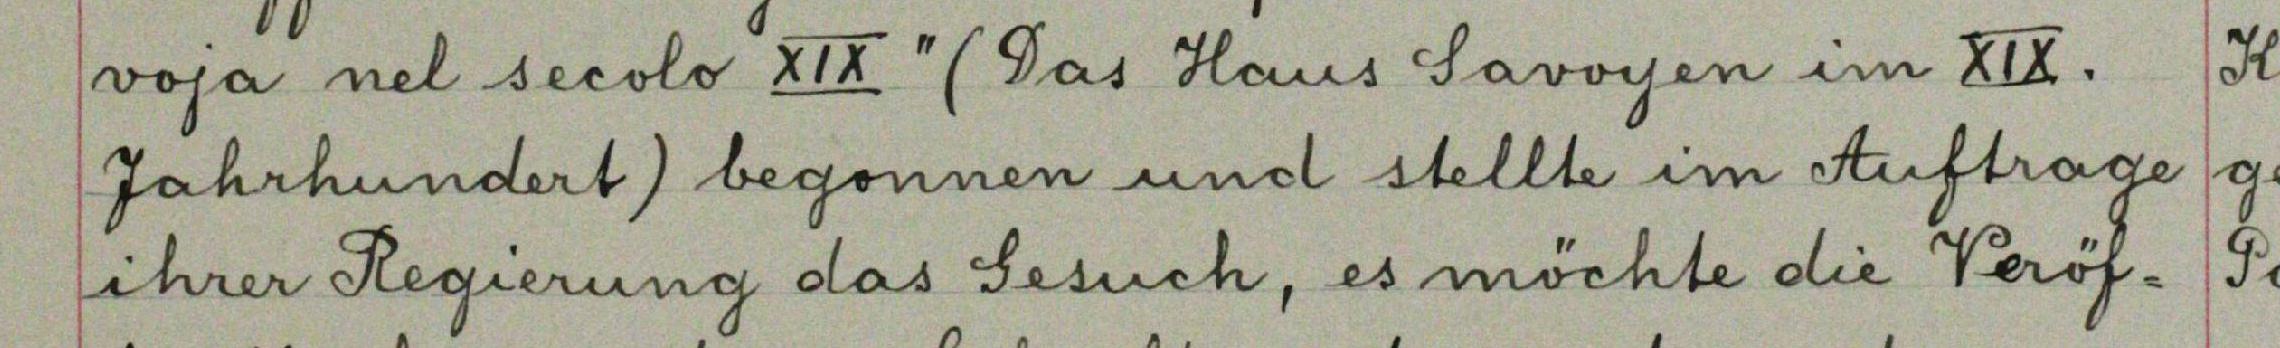 voja nel secolo XIX" (Das Haus Savoyen im XIX.
Jahrhundert) begonnen und stellte im Auftrage
ihrer Regierung das Gesuch, es möchte die Veröf-